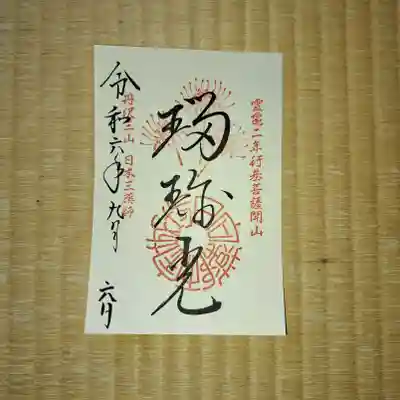 靈龜二年行基菩薩開山
瑠璃光
日本三薬師
令和六年九月
六日